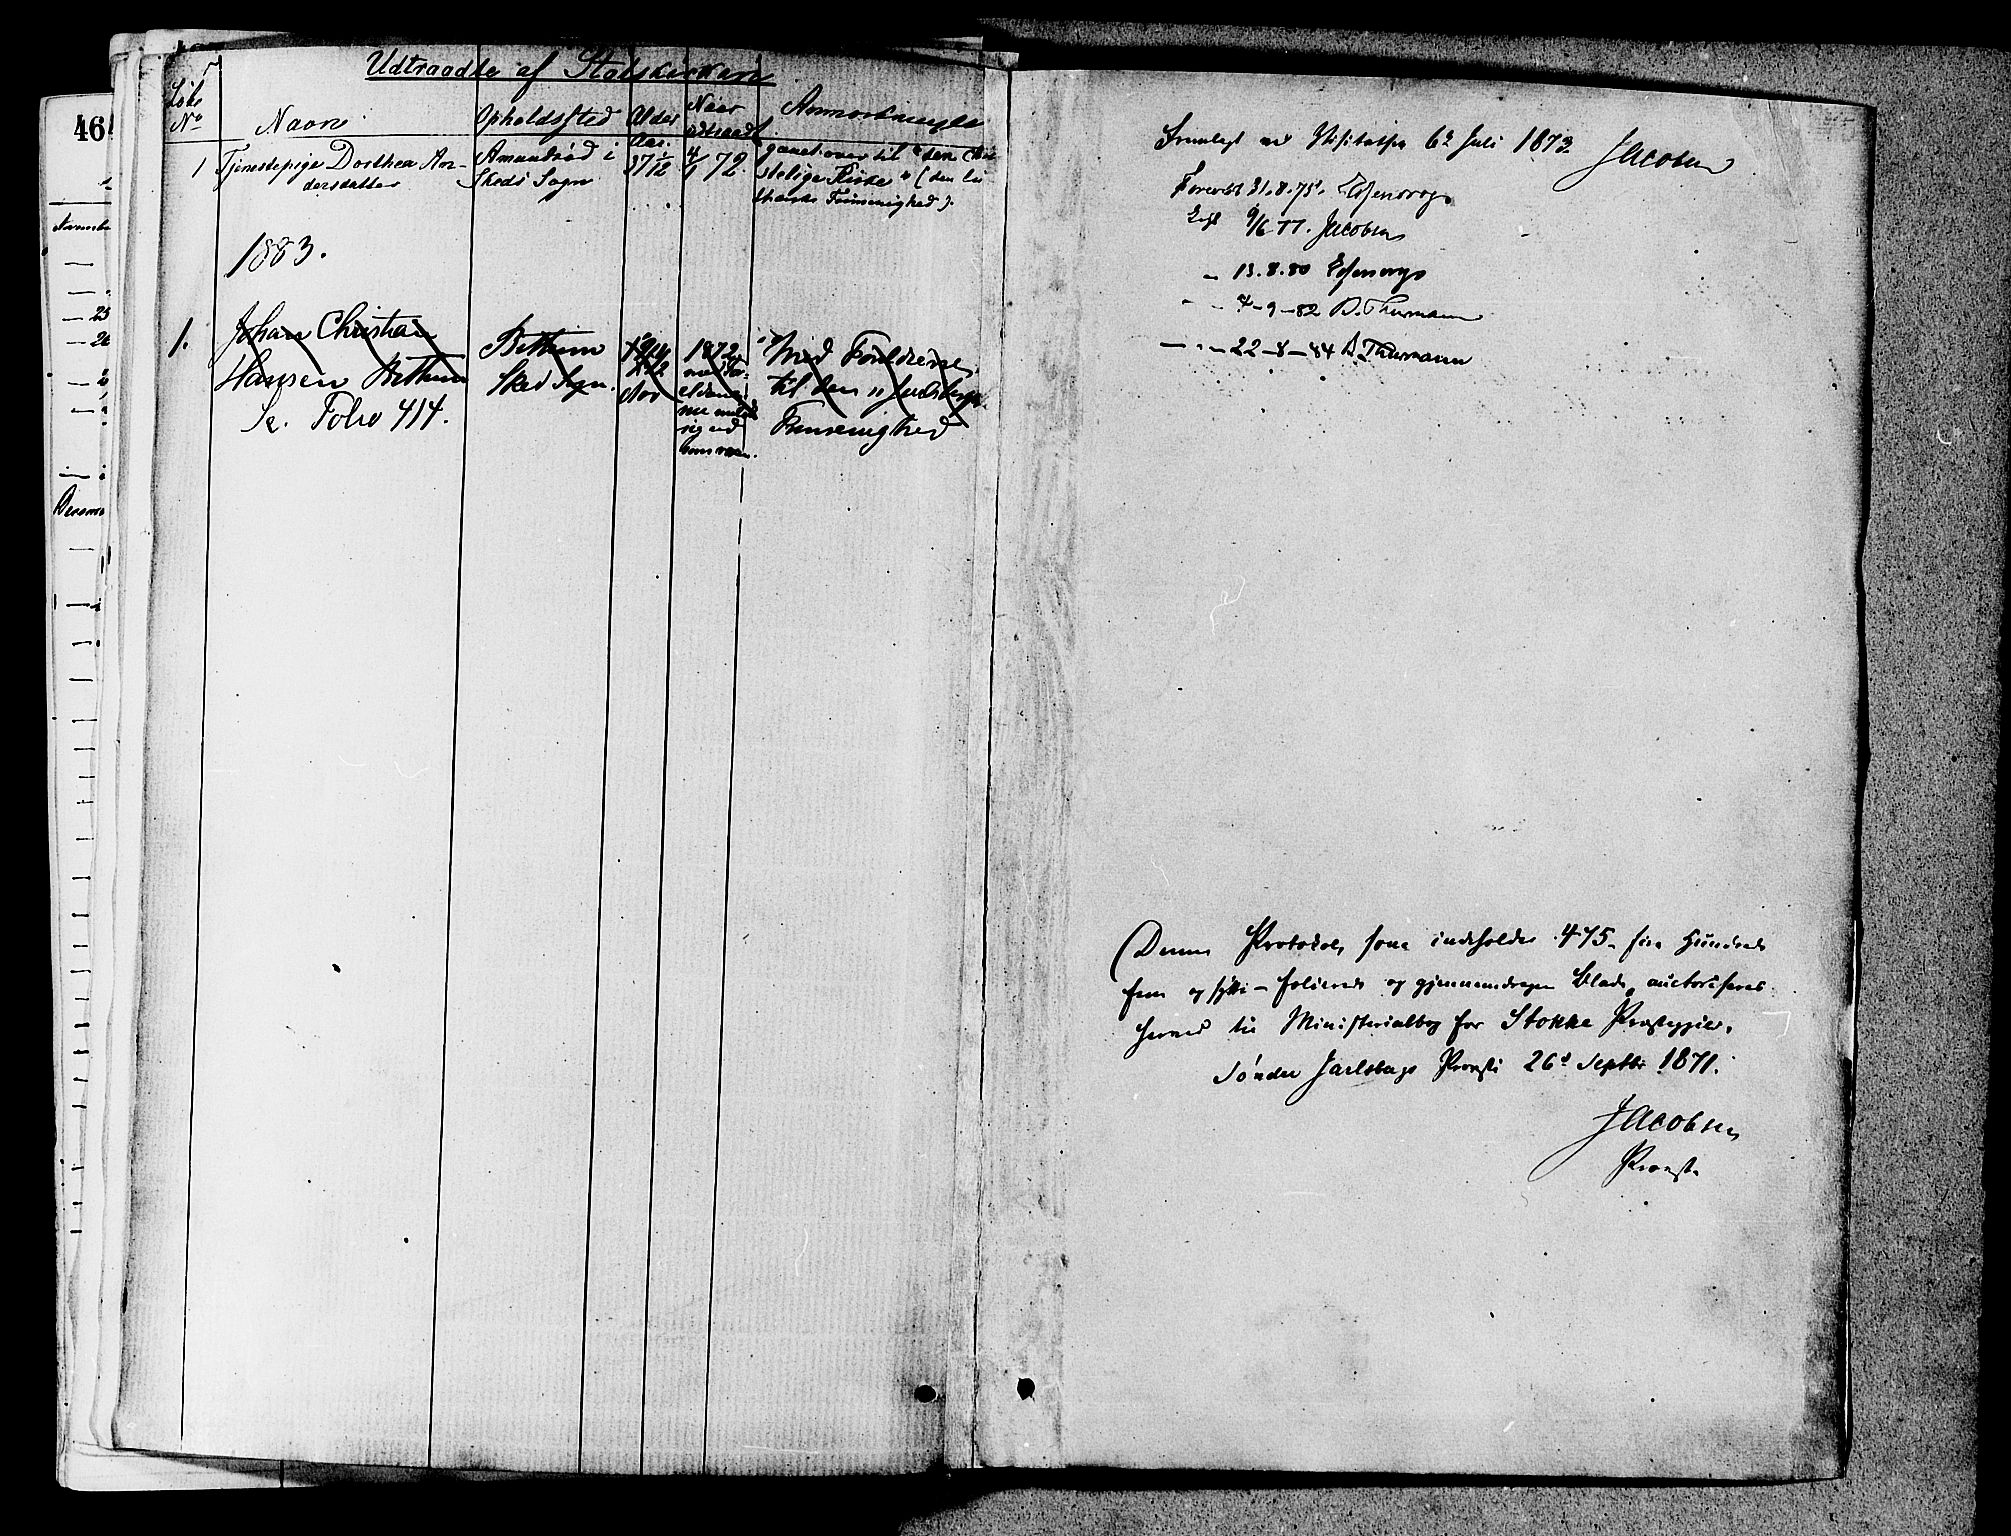 46
Udtraadte af Statskirken
Løbe
No
Navn
Opholdssted
Alder
Aar.
Naar
udtraadt
Anmærkninger
1
Tjenestepige Dorthea An-
dersdatter
Amundsrød i
Skeds Sogn
37 1/2
4/1 72.
gaaet over til "den Chri
stelige Kirke" (den lu
therske Frimenighed).
1883.
1.
Johan Christian
Hansen Bettum
Se. Folio 414.
Bettum
Sked Sogn.
1872
med For-
ældrene
sig ud
Med Forældrene
til den "Jarlsberg
Frimenighed
Fremlagt ved Visitatsen 6te Juli 1873
JJacobsen
Forevist 31.8.75. Essendrop
9/6 77. Jacobsen
" 13.8.80 Essendrop
" - 7-9-82 B. Thurmann
- " - 22-8-84 B. Thurmann
Denne Protokol, som indeholder 475 - fire Hundrede
fem og sytti - folierede og gjennemdragne Blade, auctoriseres
herved til Ministerialbog for Stokke Præstegjeld.
Sønder Jarlsbergs Provsti 26d Septbr 1871.
JJacobsen
Provst